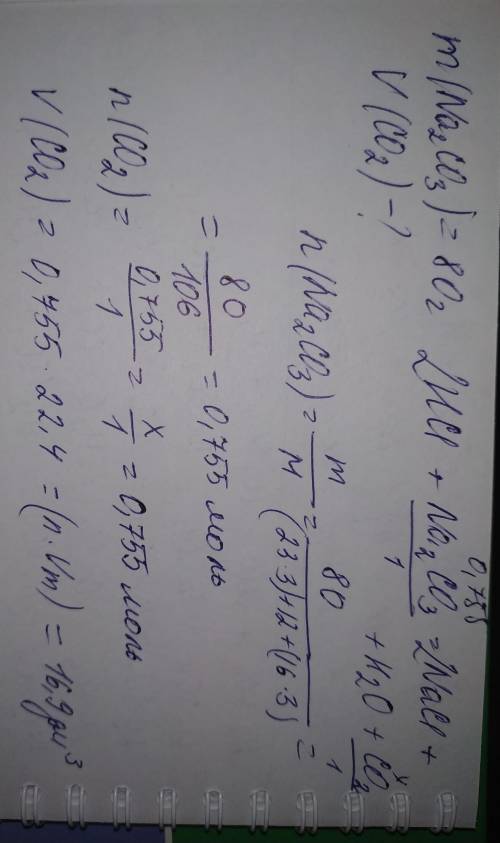 m(Na₂CO₃) = 80г 2HCl + Na₂CO₃ = 2NaCl +
0,755
1
V(CO₂) - ? + H₂O + CO₂
x
1
n(Na₂CO₃) = m/M = 80/((23·3)+12+(16·3)) =
= 80/106 = 0,755 моль
n(CO₂) = 0,755/1 = x/1 = 0,755 моль
V(CO₂) = 0,755 · 22,4 = (n·Vm) = 16,9 дм³